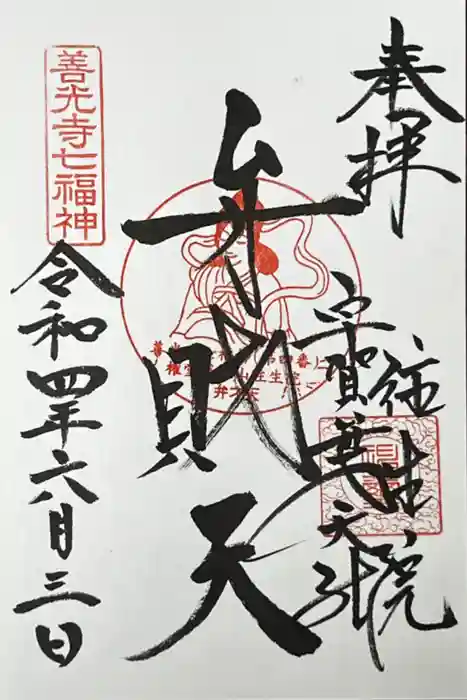 奉拝
往生院
宇賀
天
弁財天
善光寺七福神
令和四年六月三日